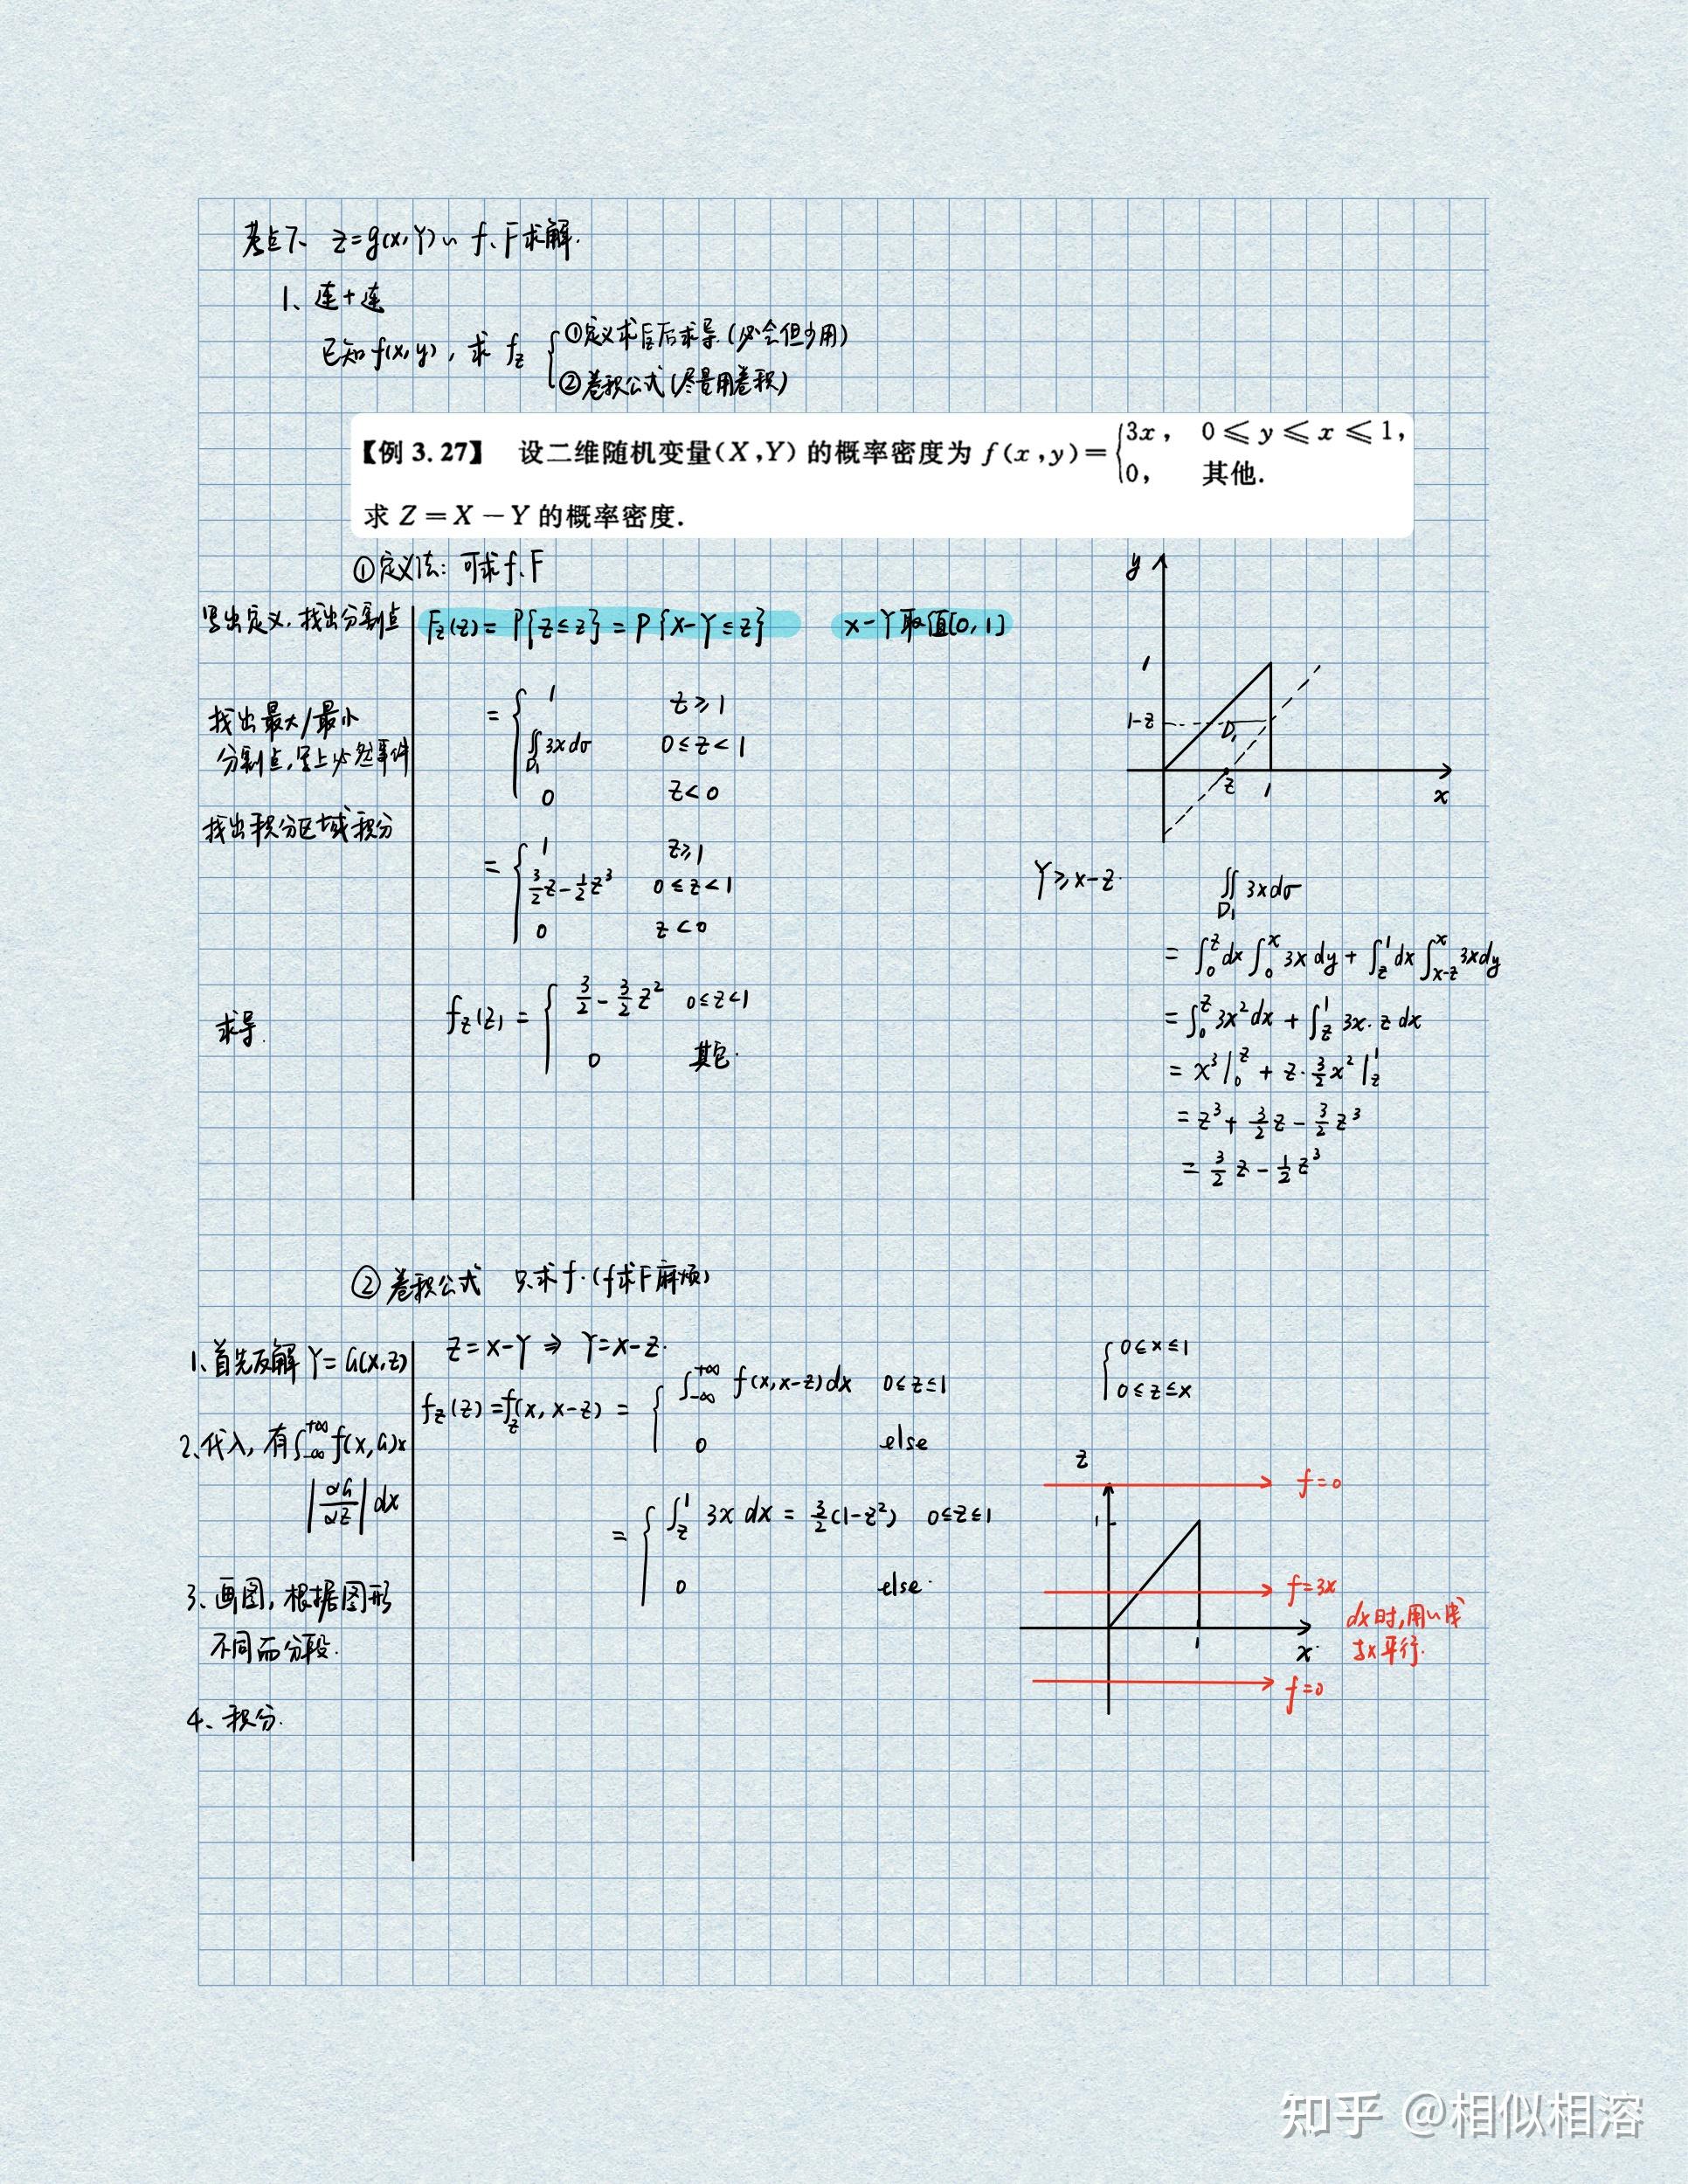 考点7、 z=g(x,Y)~ f、F求解.
1、连+连
已知f(x,y), 求 f_z { ①定义求F_z后求导.(必会但少用)
②卷积公式(尽量用卷积)
【例 3.27】 设二维随机变量(X,Y)的概率密度为 f(x,y)= { 3x, 0≤y≤x≤1,
0, 其他.
求 Z=X-Y 的概率密度.
①定义法: 可求f、F
写出定义,找出分割点 F_z(z)=P{z≤z}=P{x-Y≤z} x-Y取值[0,1]
找出最大/最小
分割点,写上必然事件
= { 1 z≥1
∬_{D₁} 3xdσ 0≤z<1
0 z<0
找出积分区域积分
= { 1 z≥1
3/2 z - 1/2 z³ 0≤z<1
0 z<0
求导. f_z(z) = { 3/2 - 3/2 z² 0≤z<1
0 其它.
y
1
1-z
D₁
z 1 x
Y≥x-z. ∬_{D₁} 3xdσ
= ∫₀^z dx ∫₀^x 3x dy + ∫_z^1 dx ∫_{x-z}^x 3xdy
= ∫₀^z 3x²dx + ∫_z^1 3x·z dx
= x³|₀^z + z·3/2 x²|_z^1
= z³ + 3/2 z - 3/2 z³
= 3/2 z - 1/2 z³
② 卷积公式 只求f.(f求F麻烦)
1、首先反解 Y=G(x,z) z=x-Y ⇒ Y=x-z.
2、代入,有∫_{-∞}^{+∞} f(x,G)×
|αG/αz| dx
f_z(z)=f_z(x,x-z) = { ∫_{-∞}^{+∞} f(x,x-z)dx 0≤z≤1
0 else
= { ∫_z^1 3x dx = 3/2(1-z²) 0≤z≤1
0 else.
3、画图,根据图形
不同而分段.
4、积分.
{ 0≤x≤1
0≤z≤x
z
f=0
1
f=3x
1 x.
dx时,用~线
与x平行.
f=0
知乎 @相似相溶